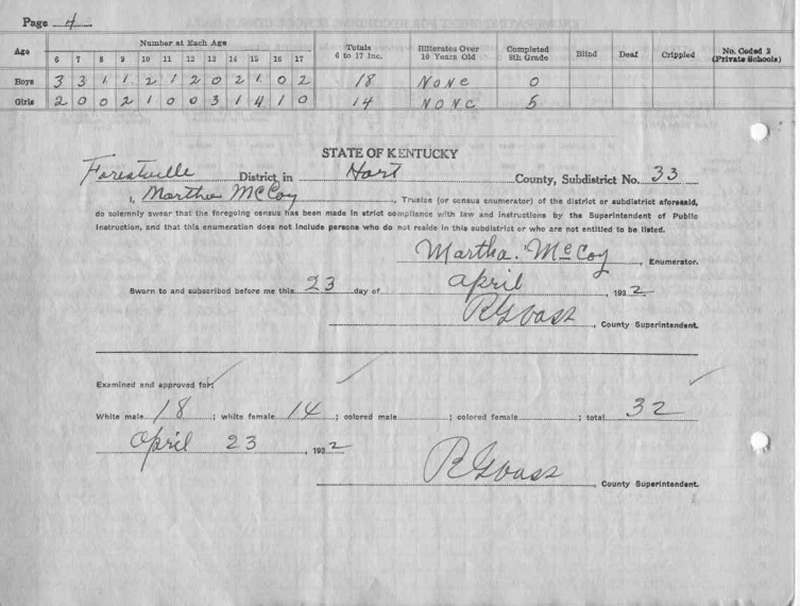 Page 4
Age Number at Each Age Totals 6 to 17 Inc. Illiterates Over 10 Years Old Completed 8th Grade Blind Deaf Crippled No. Coded 2 (Private Schools)
6 7 8 9 10 11 12 13 14 15 16 17
Boys 3 3 1 1 2 1 2 0 2 1 0 2 18 NONE 0
Girls 2 0 0 2 1 0 0 3 1 4 1 0 14 NONC 5
STATE OF KENTUCKY
Forestville District in Hart County, Subdistrict No. 33
I, Martha McCoy, Trustee (or census enumerator) of the district or subdistrict aforesaid,
do solemnly swear that the foregoing census has been made in strict compliance with law and instructions by the Superintendent of Public
Instruction, and that this enumeration does not include persons who do not reside in this subdistrict or who are not entitled to be listed.
Martha McCoy, Enumerator.
Sworn to and subscribed before me this 23 day of April, 1932
County Superintendent.
Examined and approved for:
White male 18; white female 14; colored male; colored female; total 32
April 23, 1932
County Superintendent.